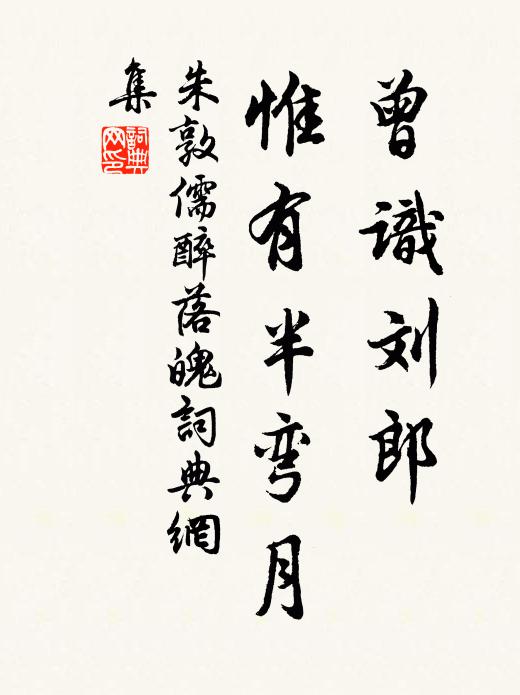 曾識刘郎
惟有半弯月
朱敦儒醉落魄詞典網
集
詞典
网印